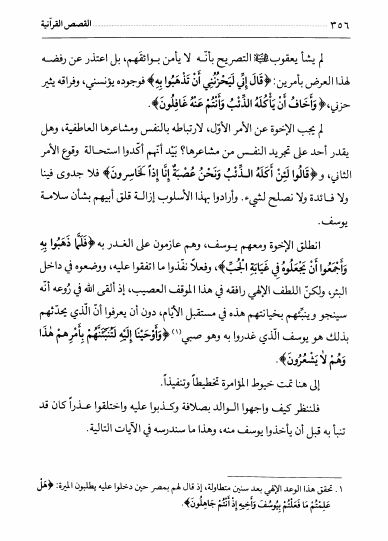 ٣٥٦ القصص القرآنية
لم يشأ يعقوب ﵇ التصريح بأنّه لا يأمن بوائقهم، بل اعتذر عن رفضه
لهذا العرض بأمرين: ﴿قَالَ إِنِّي لَيَحْزُنُنِي أَنْ تَذْهَبُوا بِهِ﴾ فوجوده يؤنسني، وفراقه يثير
حزني، ﴿وَأَخَافُ أَنْ يَأْكُلَهُ الذِّئْبُ وَأَنْتُمْ عَنْهُ غَافِلُونَ﴾.
لم يجب الإخوة عن الأمر الأوّل، لارتباطه بالنفس ومشاعرها العاطفية، وهل
يقدر أحد على تجريد النفس من مشاعرها؟ بَيْد أنّهم أكّدوا استحالة وقوع الأمر
الثاني، و﴿قَالُوا لَئِنْ أَكَلَهُ الذِّئْبُ وَنَحْنُ عُصْبَةٌ إِنَّا إِذاً لَخَاسِرُونَ﴾ فلا جدوى فينا
ولا فائدة ولا نصلح لشيء. وأرادوا بهذا الأسلوب إزالة قلق أبيهم بشأن سلامة
يوسف.
انطلق الإخوة ومعهم يوسف، وهم عازمون على الغدر به ﴿فَلَمَّا ذَهَبُوا بِهِ
وَأَجْمَعُوا أَنْ يَجْعَلُوهُ فِي غَيَابَةِ الْجُبِّ﴾، وفعلاً نفّذوا ما اتفقوا عليه، ووضعوه في داخل
البئر، ولكنّ اللطف الإلهي رافقه في هذا الموقف العصيب، إذ ألقى الله في رُوعه أنّه
سينجو وينبّئهم بخيانتهم هذه في مستقبل الأيّام، دون أن يعرفوا أنّ الّذي يحدّثهم
بذلك هو يوسف الّذي غدروا به وهو صبي(١) ﴿وَأَوْحَيْنَا إِلَيْهِ لَتُنَبِّئَنَّهُمْ بِأَمْرِهِمْ هَٰذَا
وَهُمْ لَا يَشْعُرُونَ﴾.
إلى هنا تمت خيوط المؤامرة تخطيطاً وتنفيذاً.
فلننظر كيف واجهوا الوالد بصلافة وكذبوا عليه واختلقوا عذراً كان قد
تنبأ به قبل أن يأخذوا يوسف منه، وهذا ما سندرسه في الآيات التالية.
١. تحقق هذا الوعد الإلهي بعد سنين متطاولة، إذ قال لهم بمصر حين دخلوا عليه يطلبون الميرة: ﴿هَلْ
عَلِمْتُمْ مَا فَعَلْتُمْ بِيُوسُفَ وَأَخِيهِ إِذْ أَنْتُمْ جَاهِلُونَ﴾.